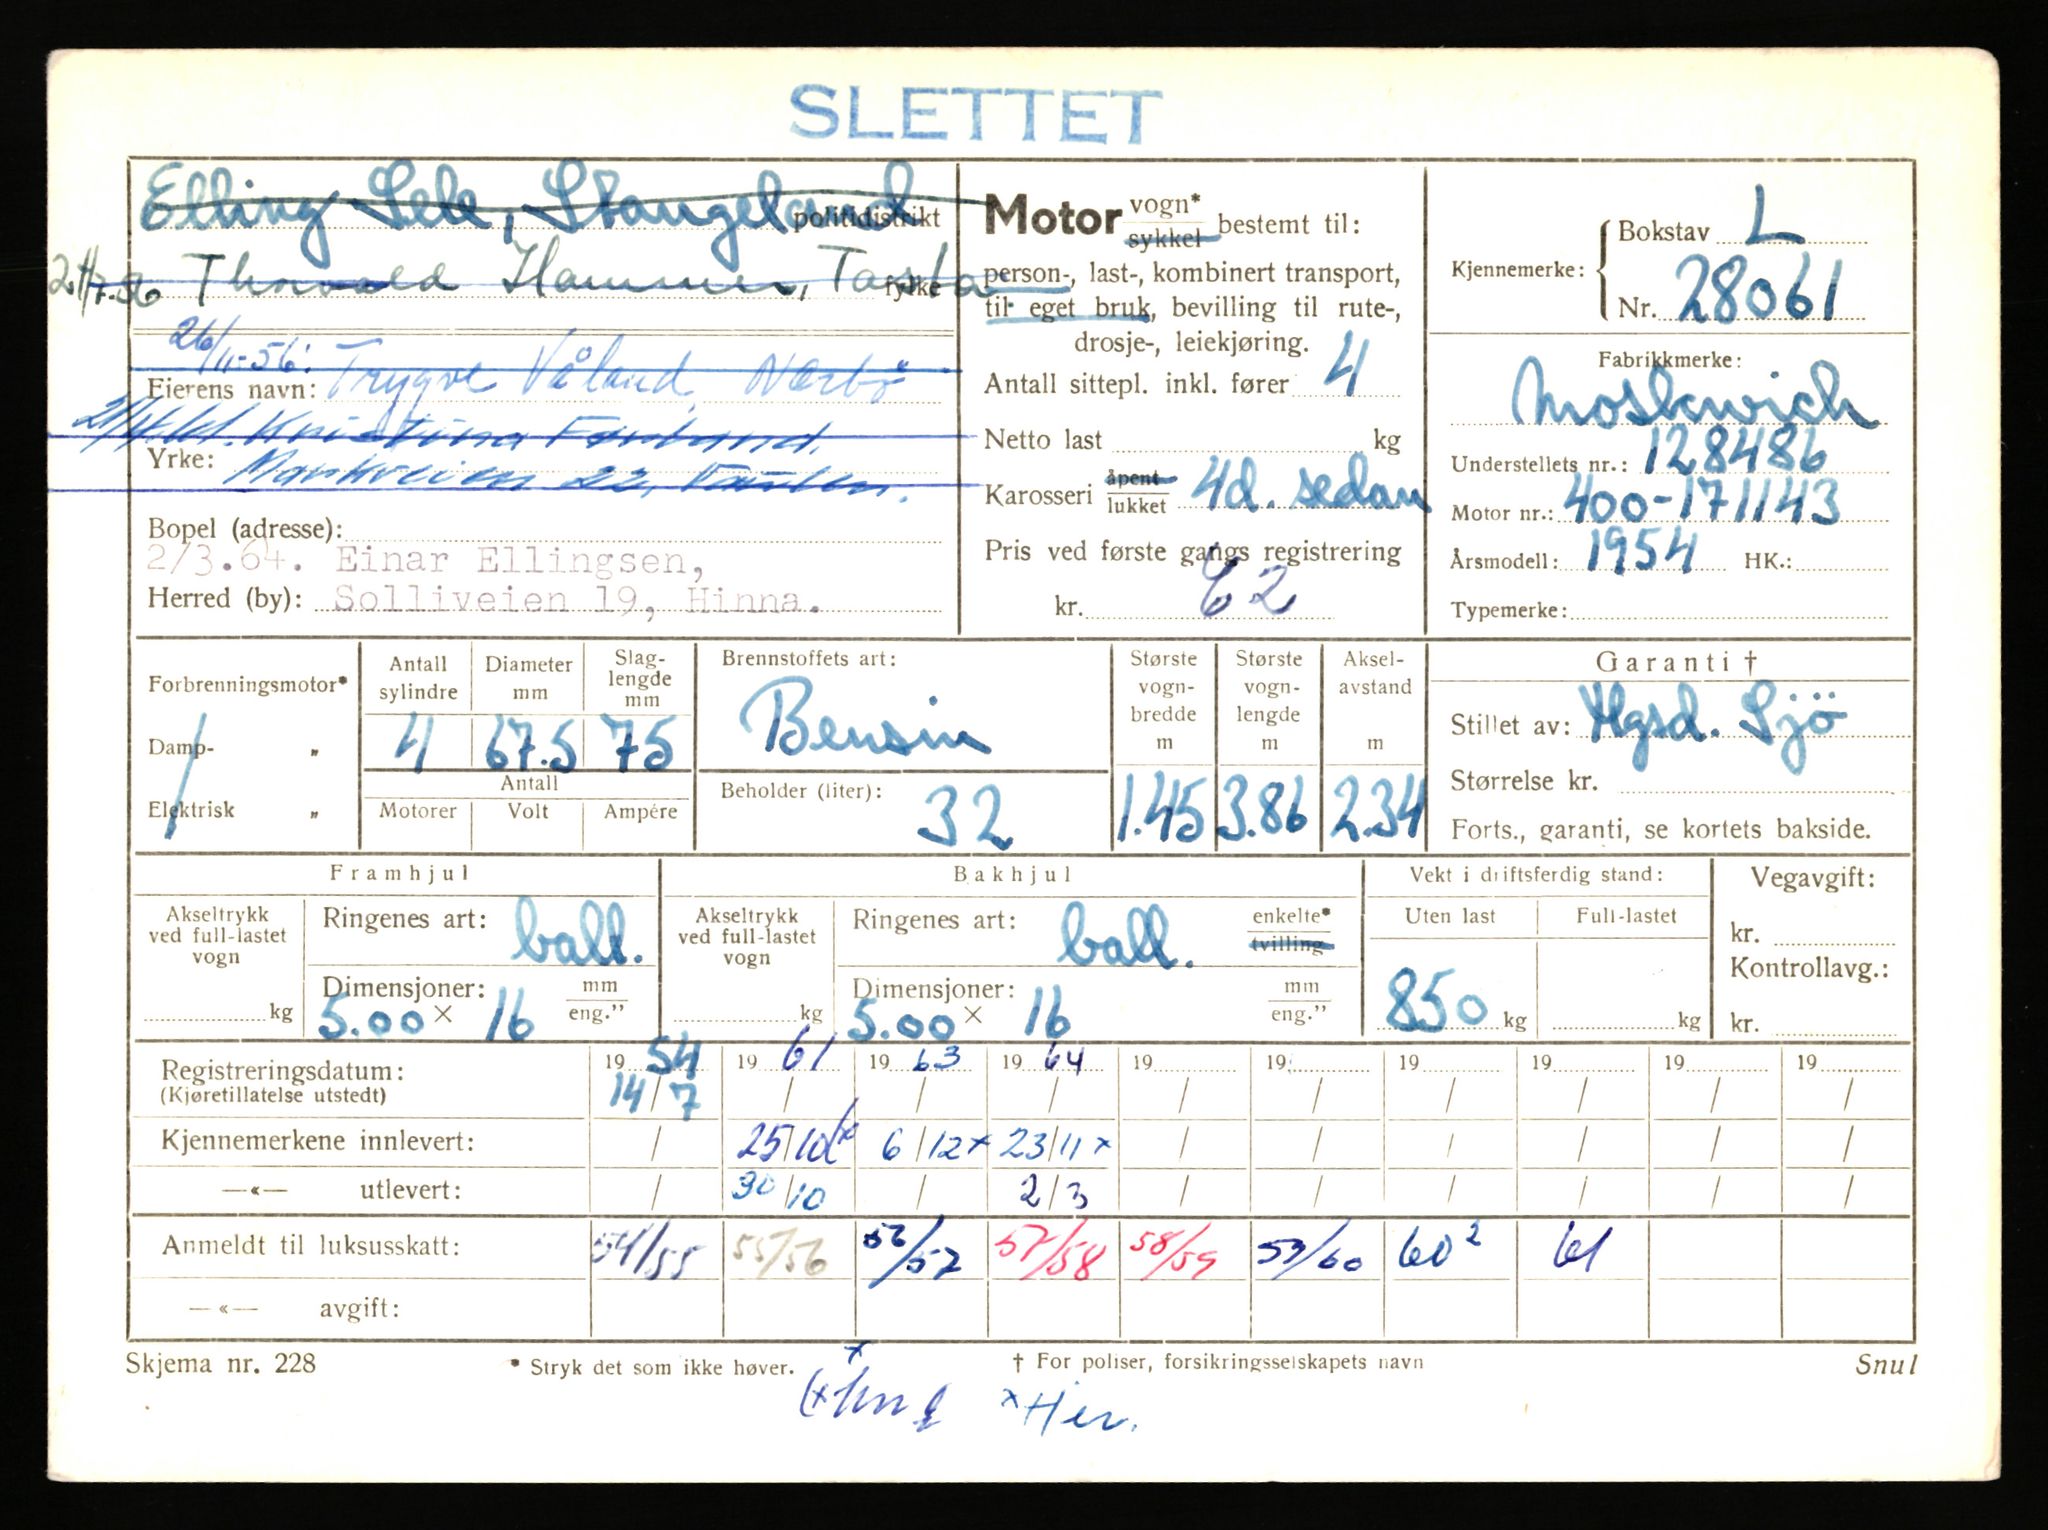 SLETTET
Elling Sele, Stangeland
politidistrikt
Thorvald Hammer, Tasta
fylke
26/11-56: Trygve Våland, Nærbø
Eierens navn:
Kristina
Yrke:
22,
Bopel (adresse):
2/3.64. Einar Ellingsen,
Herred (by): Solliveien 19, Hinna.
Motor vogn* sykkel bestemt til:
person-, last-, kombinert transport,
til eget bruk, bevilling til rute-,
drosje-, leiekjøring.
Antall sittepl. inkl. fører 4
Netto last kg
Karosseri åpent lukket 4d. sedan
Pris ved første gangs registrering
kr. 62
Kjennemerke: Bokstav L
Nr. 28061
Fabrikkmerke:
Moskwich
Understellets nr.: 128486
Motor nr.: 400-171143
Årsmodell: 1954 HK.:
Typemerke:
Forbrenningsmotor*
Damp- „
Elektrisk „
Antall sylindre
Diameter mm
Slag- lengde mm
4 67.5 75
Antall
Motorer Volt Ampére
Brennstoffets art:
Bensin
Beholder (liter):
32
Største vogn- bredde m
Største vogn- lengde m
Aksel- avstand m
1.45 3.86 2.34
Garanti †
Stillet av: Hgsd. Sjö
Størrelse kr.
Forts., garanti, se kortets bakside.
Framhjul
Akseltrykk ved full-lastet vogn
kg
Ringenes art: ball.
Dimensjoner: mm eng."
5.00 × 16
Bakhjul
Akseltrykk ved full-lastet vogn
kg
Ringenes art: ball. enkelte* tvilling
Dimensjoner: mm eng."
5.00 × 16
Vekt i driftsferdig stand:
Uten last Full-lastet
850 kg kg
Vegavgift:
kr.
Kontrollavg.:
kr.
Registreringsdatum: 19 54 19 61 19 63 19 64 19 19 19 19 19 19
(Kjøretillatelse utstedt) 14/7 / / / / / / / / /
Kjennemerkene innlevert: / 25/10 6/12 x 23/11 x / / / / / /
—«— utlevert: / 30/10 / 2/3 / / / / / /
Anmeldt til luksusskatt: 54/55 55/56 56/57 57/58 58/59 59/60 60² 61
—«— avgift:
Skjema nr. 228 * Stryk det som ikke høver. † For poliser, forsikringsselskapets navn Snul
x Her.